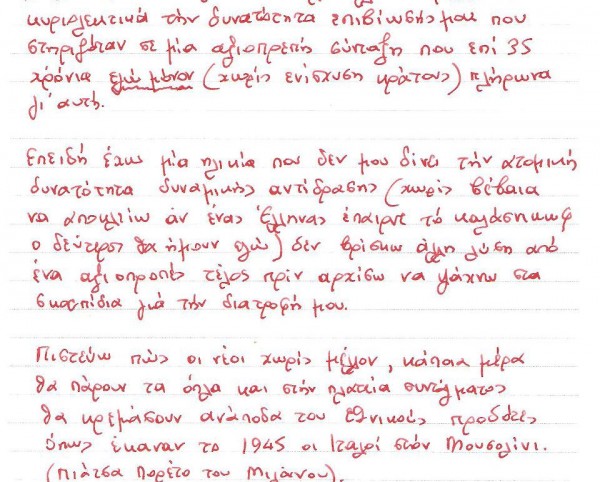 κυριολεκτικά τήν δυνατότητα επιβίωσής μου που
στηριζόταν σε μία αξιοπρεπή σύνταξη που επί 35
χρόνια εγώ μόνον (χωρίς ενίσχυση κράτους) πλήρωνα
γι' αυτή.
Επειδή έχω μία ηλικία που δεν μου δίνει τήν ατομική
δυνατότητα δυναμικής αντίδρασης (χωρίς βέβαια
να αποκλείω άν ένας Έλληνας έπαιρνε τό καλάσνικωφ
ο δεύτερος θα ήμουν εγώ) δέν βρίσκω άλλη λύση από
ένα αξιοπρεπές τέλος πρίν αρχίσω να ψάχνω στα
σκουπίδια γιά την διατροφή μου.
Πιστεύω πώς οι νέοι χωρίς μέλλον, κάποια μέρα
θα πάρουν τα όπλα και στήν πλατεία συντάγματος
θα κρεμάσουν ανάποδα τους εθνικούς προδότες
όπως έκαναν το 1945 οι Ιταλοί στόν Μουσολίνι.
(Πιάτσα Λορέτο του Μιλάνου).